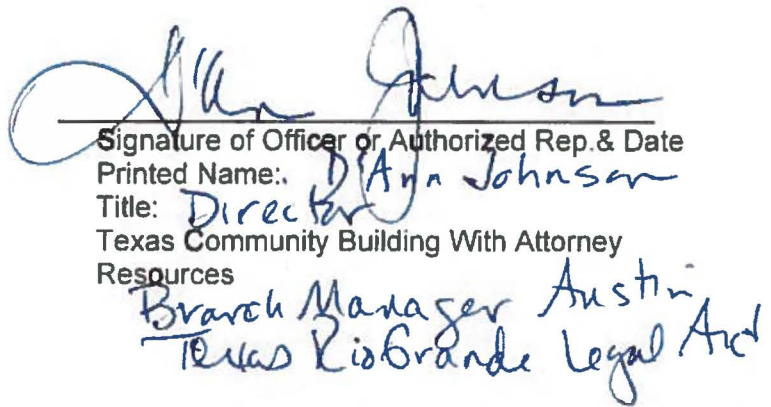 D'Ann Johnson
Signature of Officer or Authorized Rep.& Date
Printed Name:. D'Ann Johnson
Title: Director
Texas Community Building With Attorney
Resources
Branch Manager Austin
Texas RioGrande Legal Aid